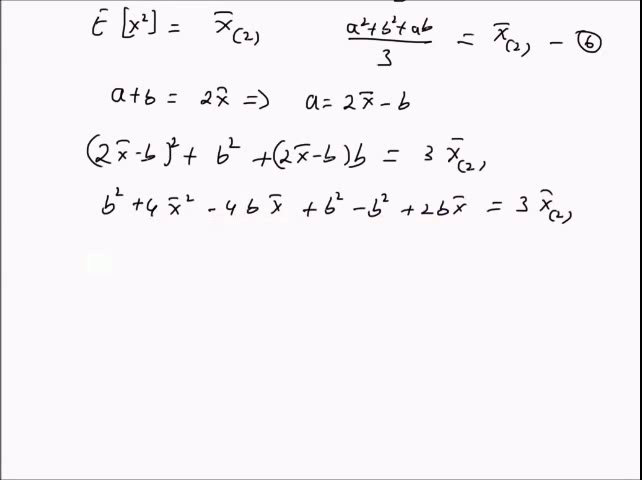 E [x²] = x̄₍₂₎   (a²+b²+ab)/3 = x̄₍₂₎ – ⑥
a+b = 2x̄ => a = 2x̄ – b
(2x̄-b)² + b² + (2x̄-b)b = 3 x̄₍₂₎
b² + 4x̄² - 4bx̄ + b² - b² + 2bx̄ = 3 x̄₍₂₎